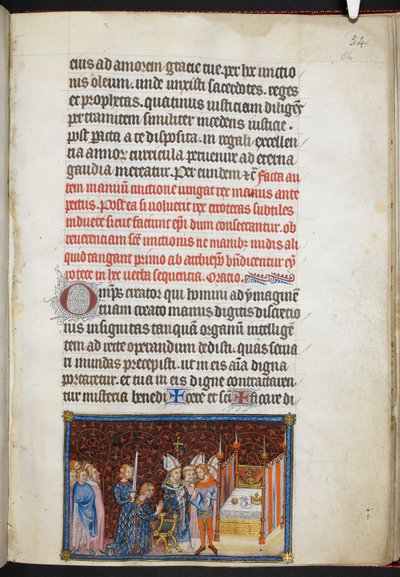 54
56
eius ad amorem gracie tue. per hec unctio
nis oleum. unde unxisti sacerdotes. reges
et prophetas. quatinus iusticiam diligens
per tramitem similiter incedens iusticie.
post peracta a te disposita. in regali excellen
cia annorum curricula pervenire ad eterna
gaudia mereatur. Per eundem etc. Facta au
tem manuum unctione iungat rex manus ante
pectus. Postea si voluerit rex cirotecas subtiles
induere sicut faciunt epi dum consecrantur. ob
reverenciam sce unctionis ne manibz nudis ali
quid tangant primo ab archiepo bndicentur cy
rotece in hec verba sequencia. Oratio.
Omps creator qui homini ad ymaginem
tuam creato manus digitis discretio
nis insignitas tanquam organum intelligen
tem ad recte operandum dedisti. quas serva
ri mundas precepisti. ut in eis aia digna
portaretur. et tua in eis digne contractaren
tur misteria benedi cere et sci ficare di